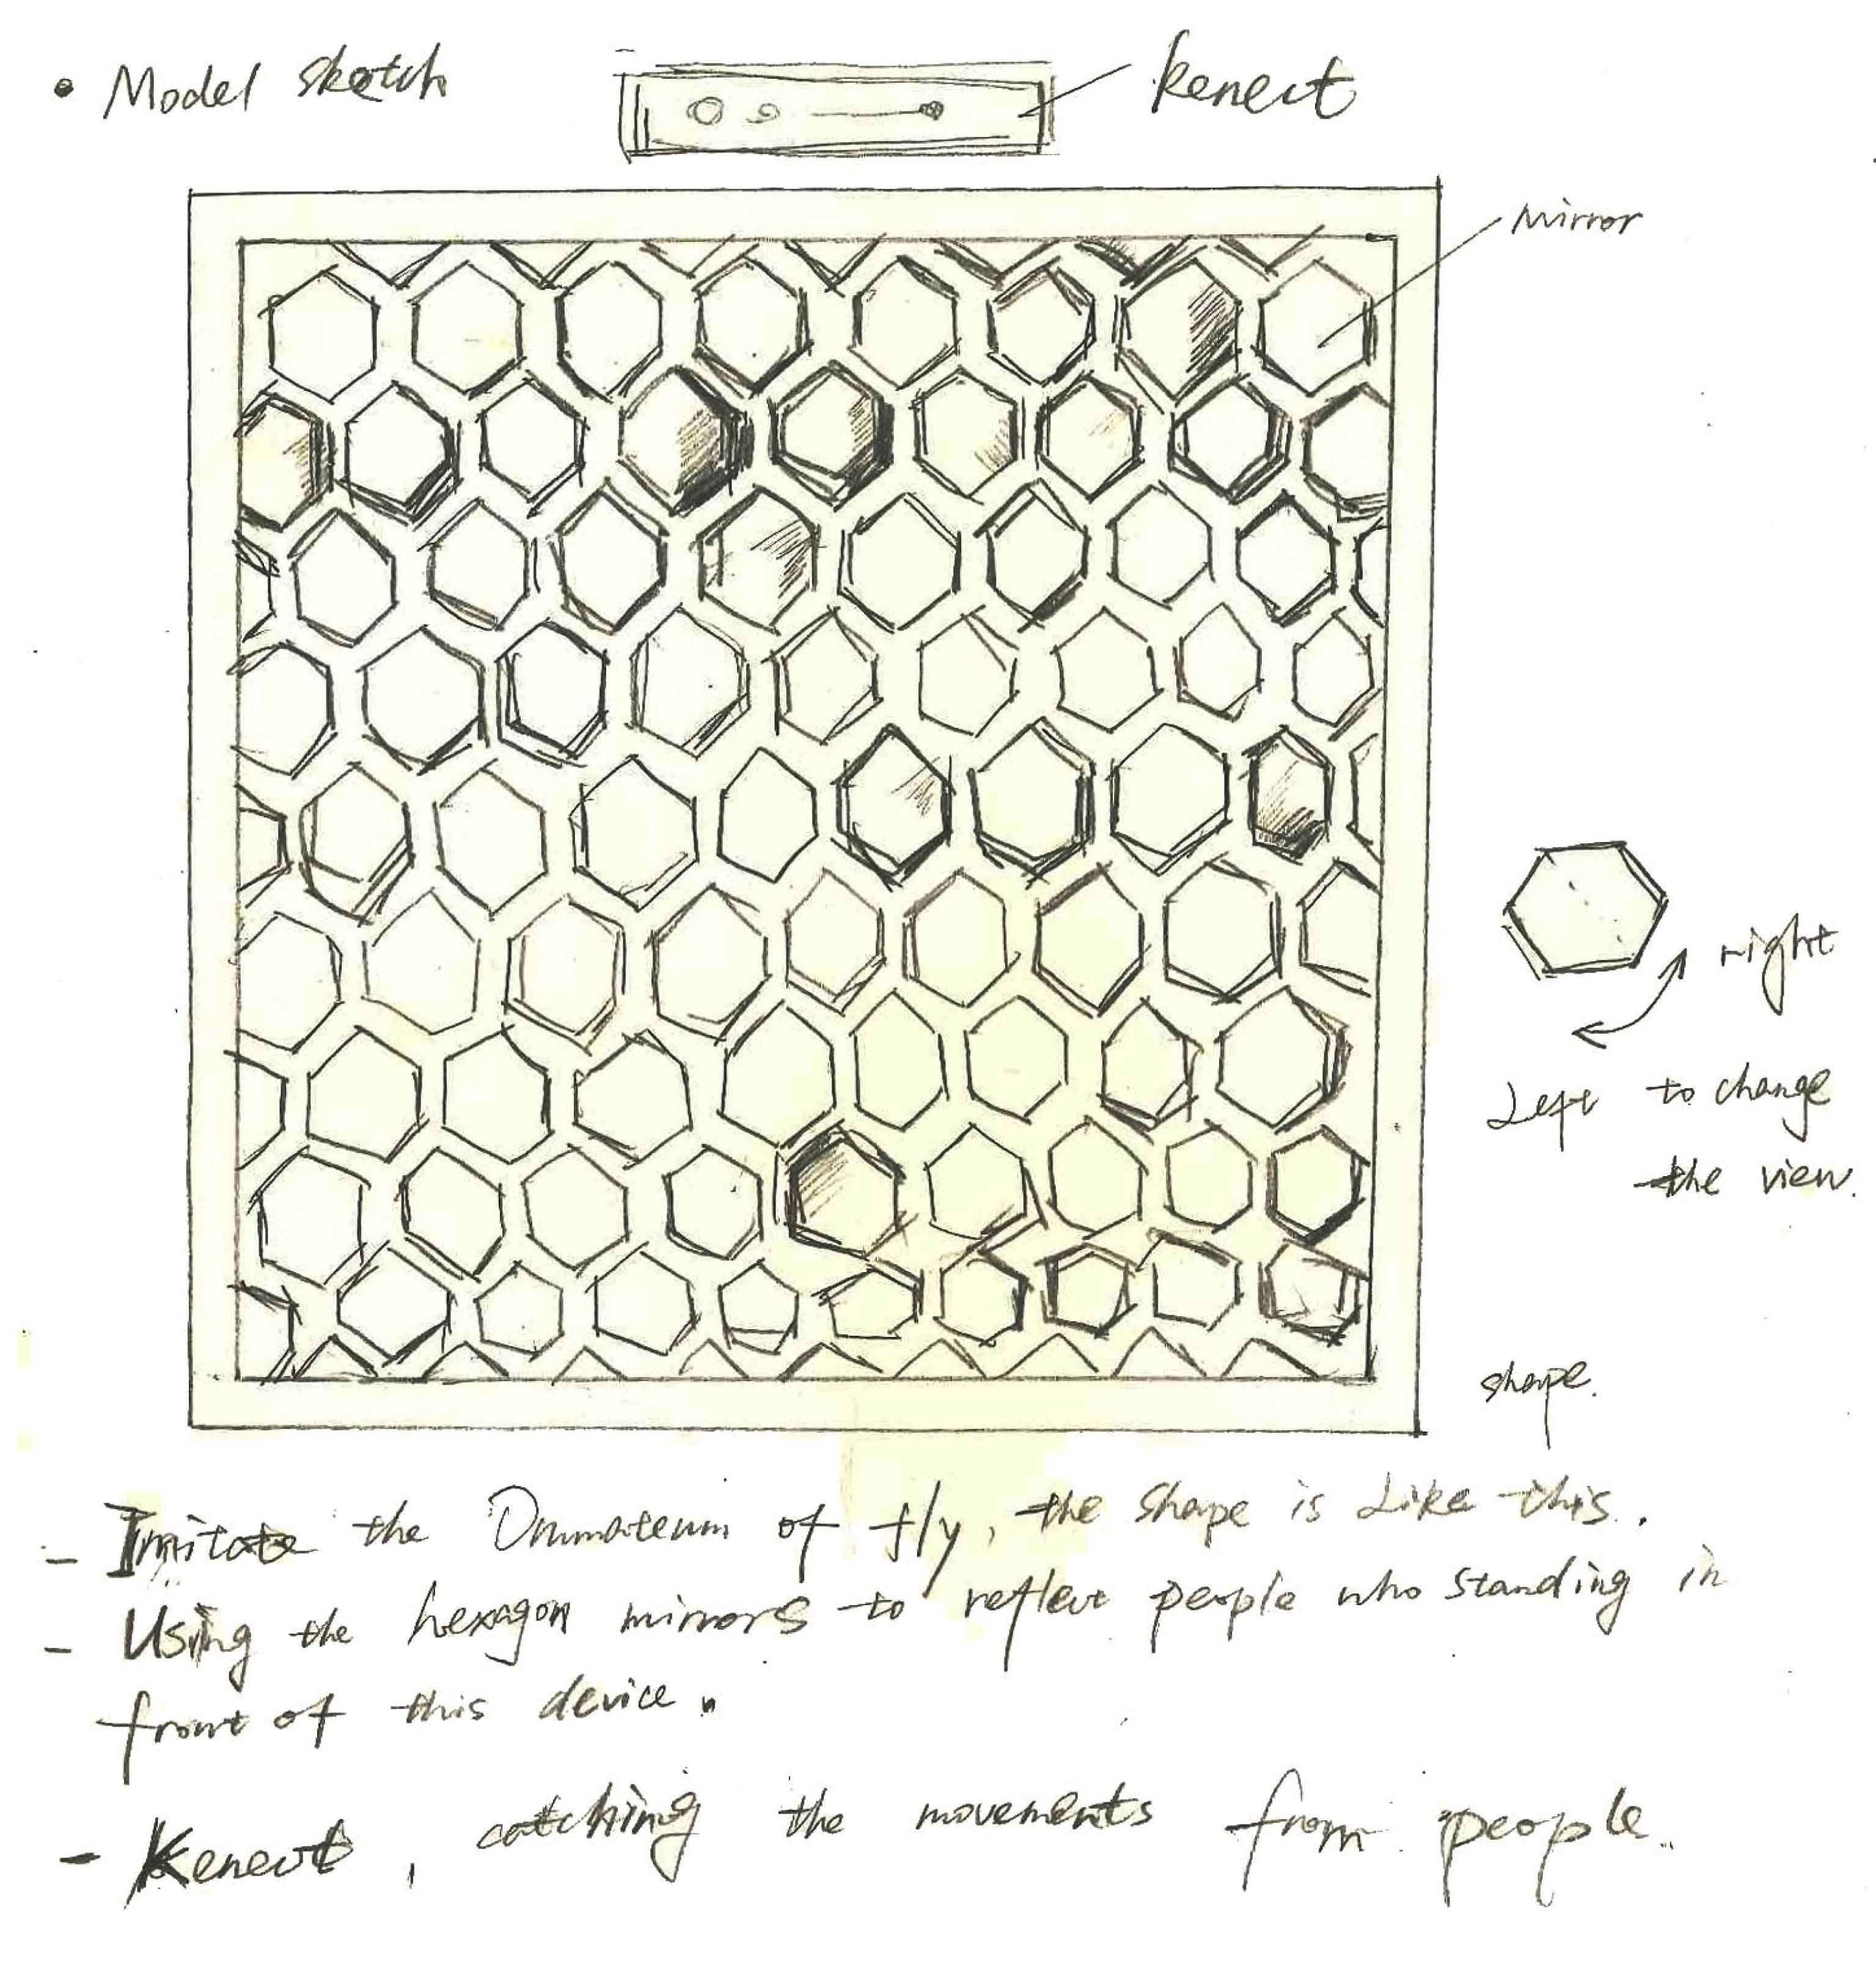 • Model sketch
kenect
mirror
right
Left to change
the view.
shape.
- Imitate the Ommateum of fly, the shape is Like this.
- Using the hexagon mirrors to reflect people who standing in
front of this device.
- Kenect, catching the movements from people.